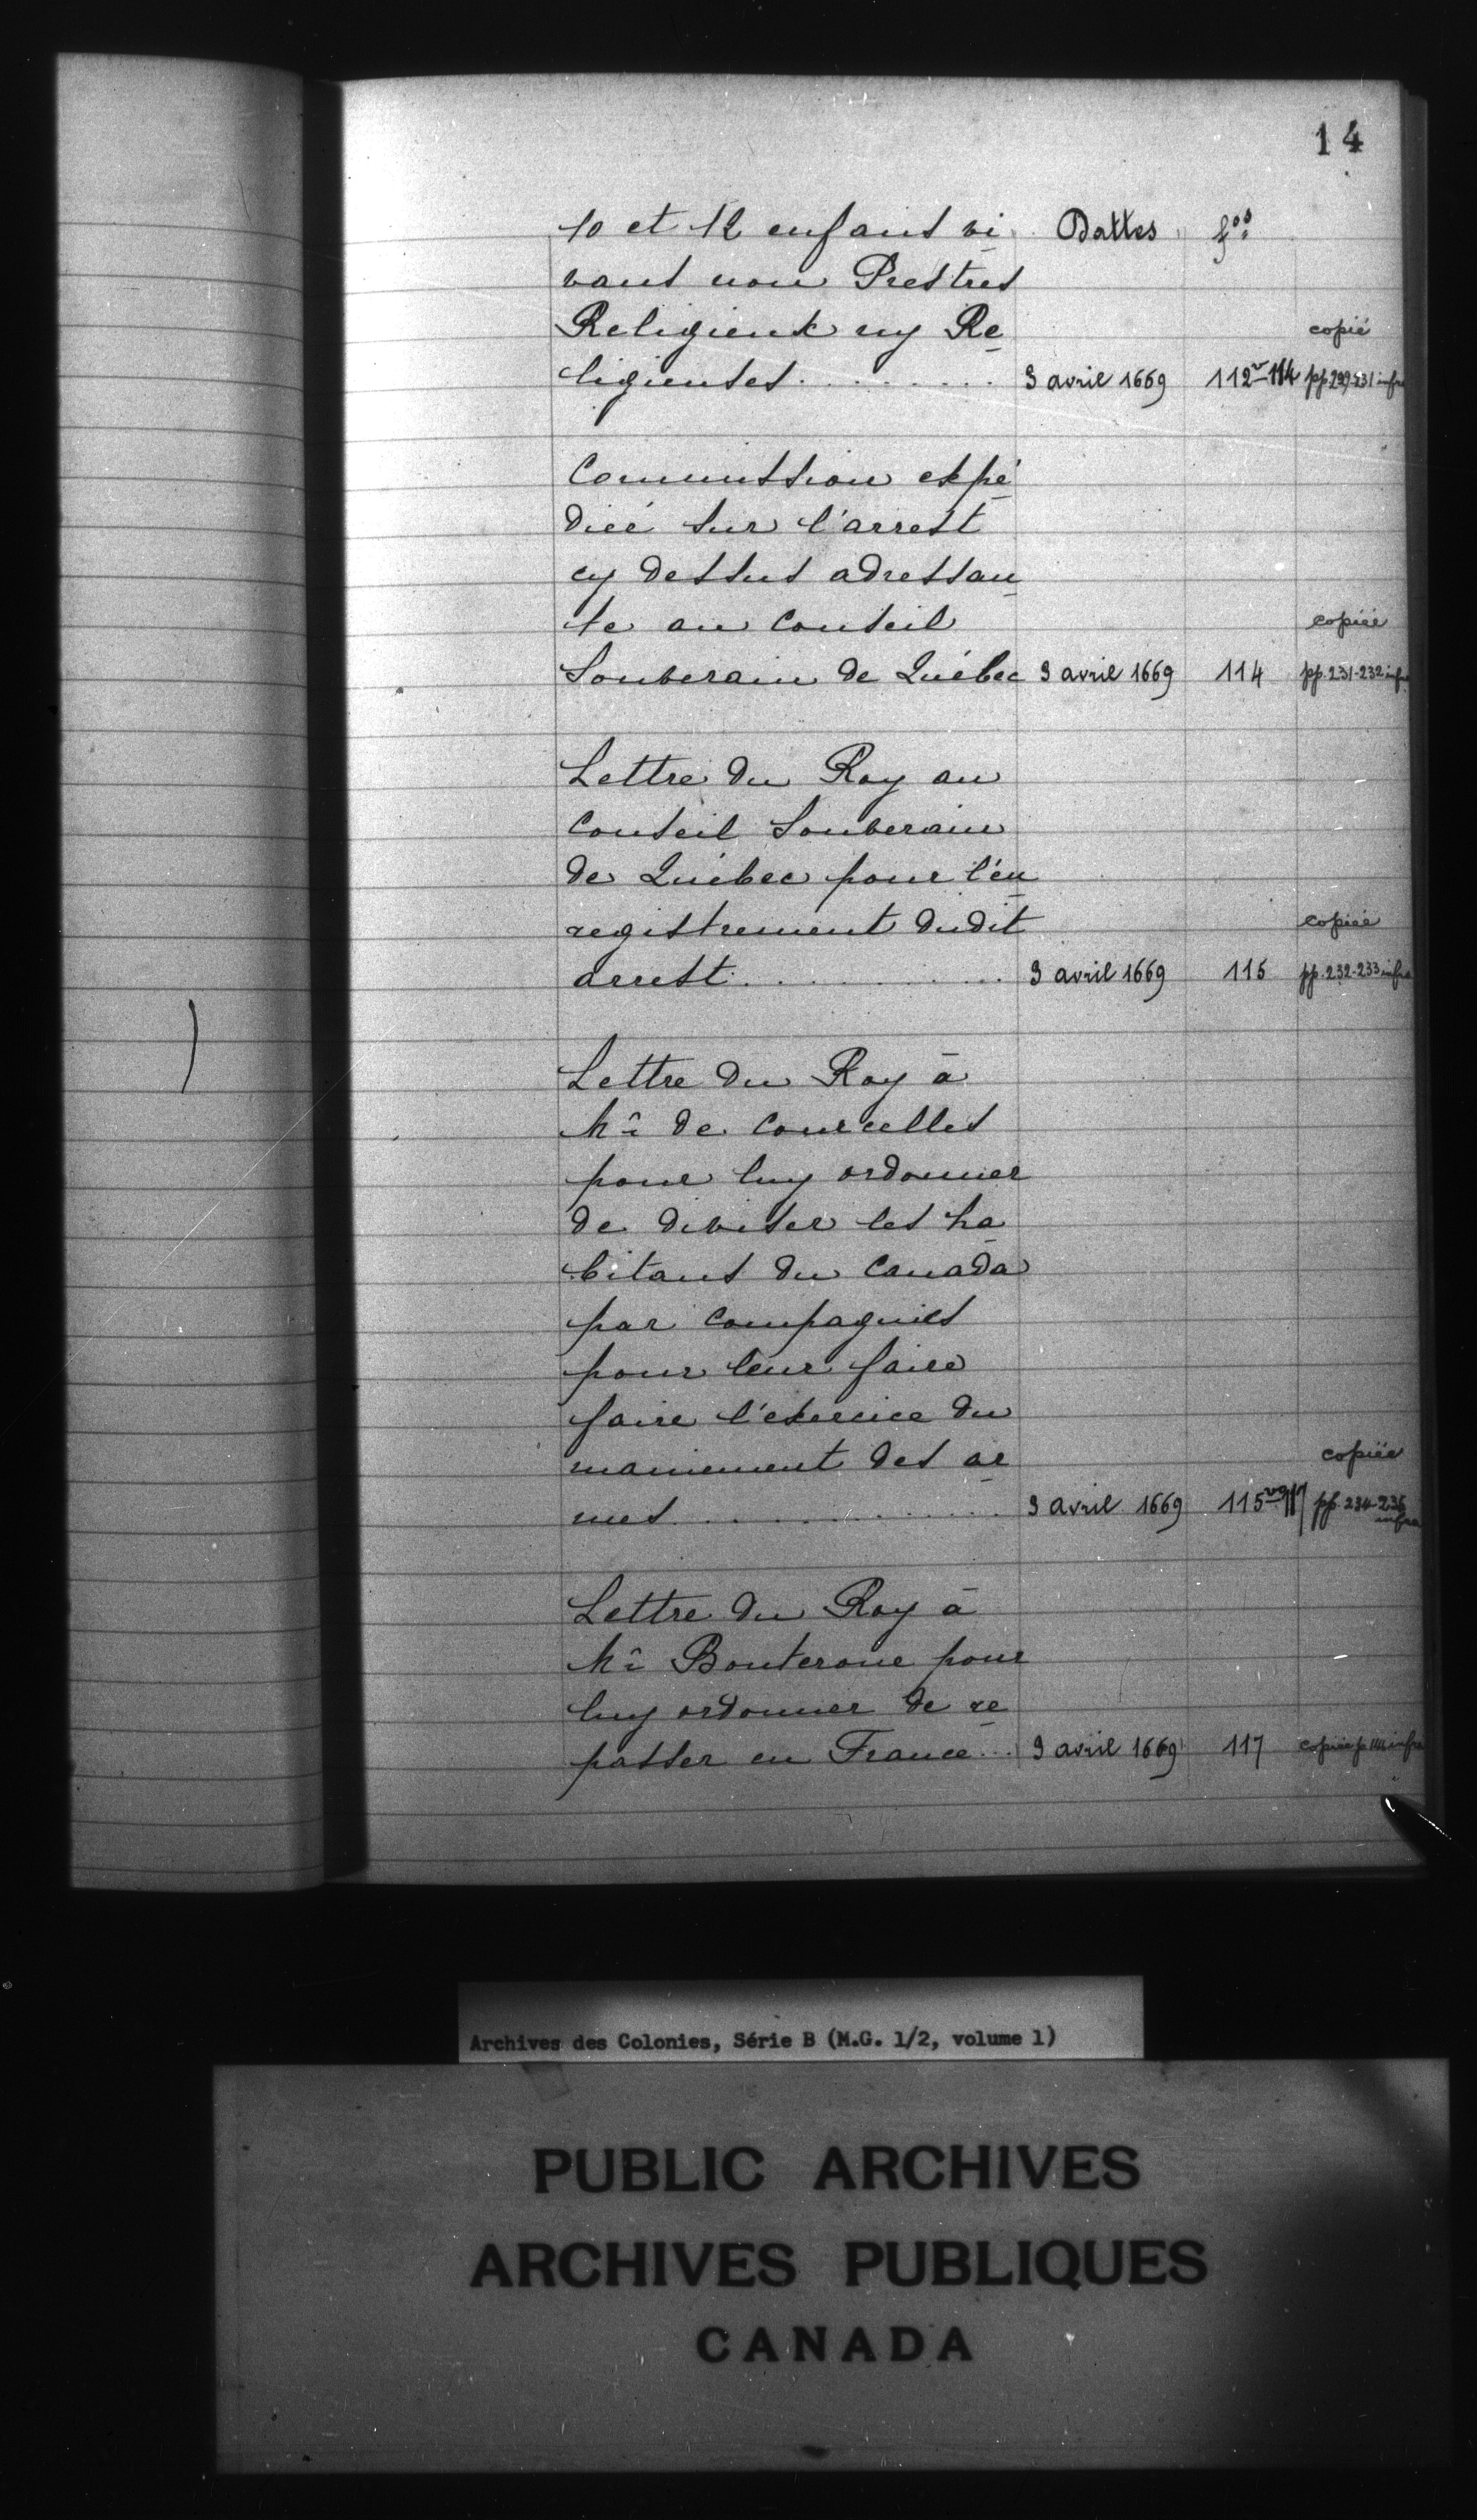 14
10 et 12 enfans vi Dattes fos
vans non Prestres
Religieux ny Re copié
ligieuses.......... 3 avril 1669 112v-114 pp. 229-231 infra
Commission expé
diée sur l'arrest
cy dessus adressan
te au Conseil copiée
Souverain de Québec 3 avril 1669 114 pp. 231-232 infra
Lettre du Roy au
Conseil Souverain
de Québec pour l'en
registrement dudit copiée
arrest............. 3 avril 1669 115 pp. 232-233 infra
Lettre du Roy à
Mr de Courcelles
pour luy ordonner
de diviser les ha
bitans du Canada
par Compagnies
pour leur faire
faire l'exercice du
maniement des ar copiée
mes............... 3 avril 1669 115vo-117 pp. 234-236 infra
Lettre du Roy à
Mr Bouteroue pour
luy ordonner de re
passer en France... 3 avril 1669 117 copiée p. infra
Archives des Colonies, Série B (M.G. 1/2, volume 1)
PUBLIC ARCHIVES
ARCHIVES PUBLIQUES
CANADA